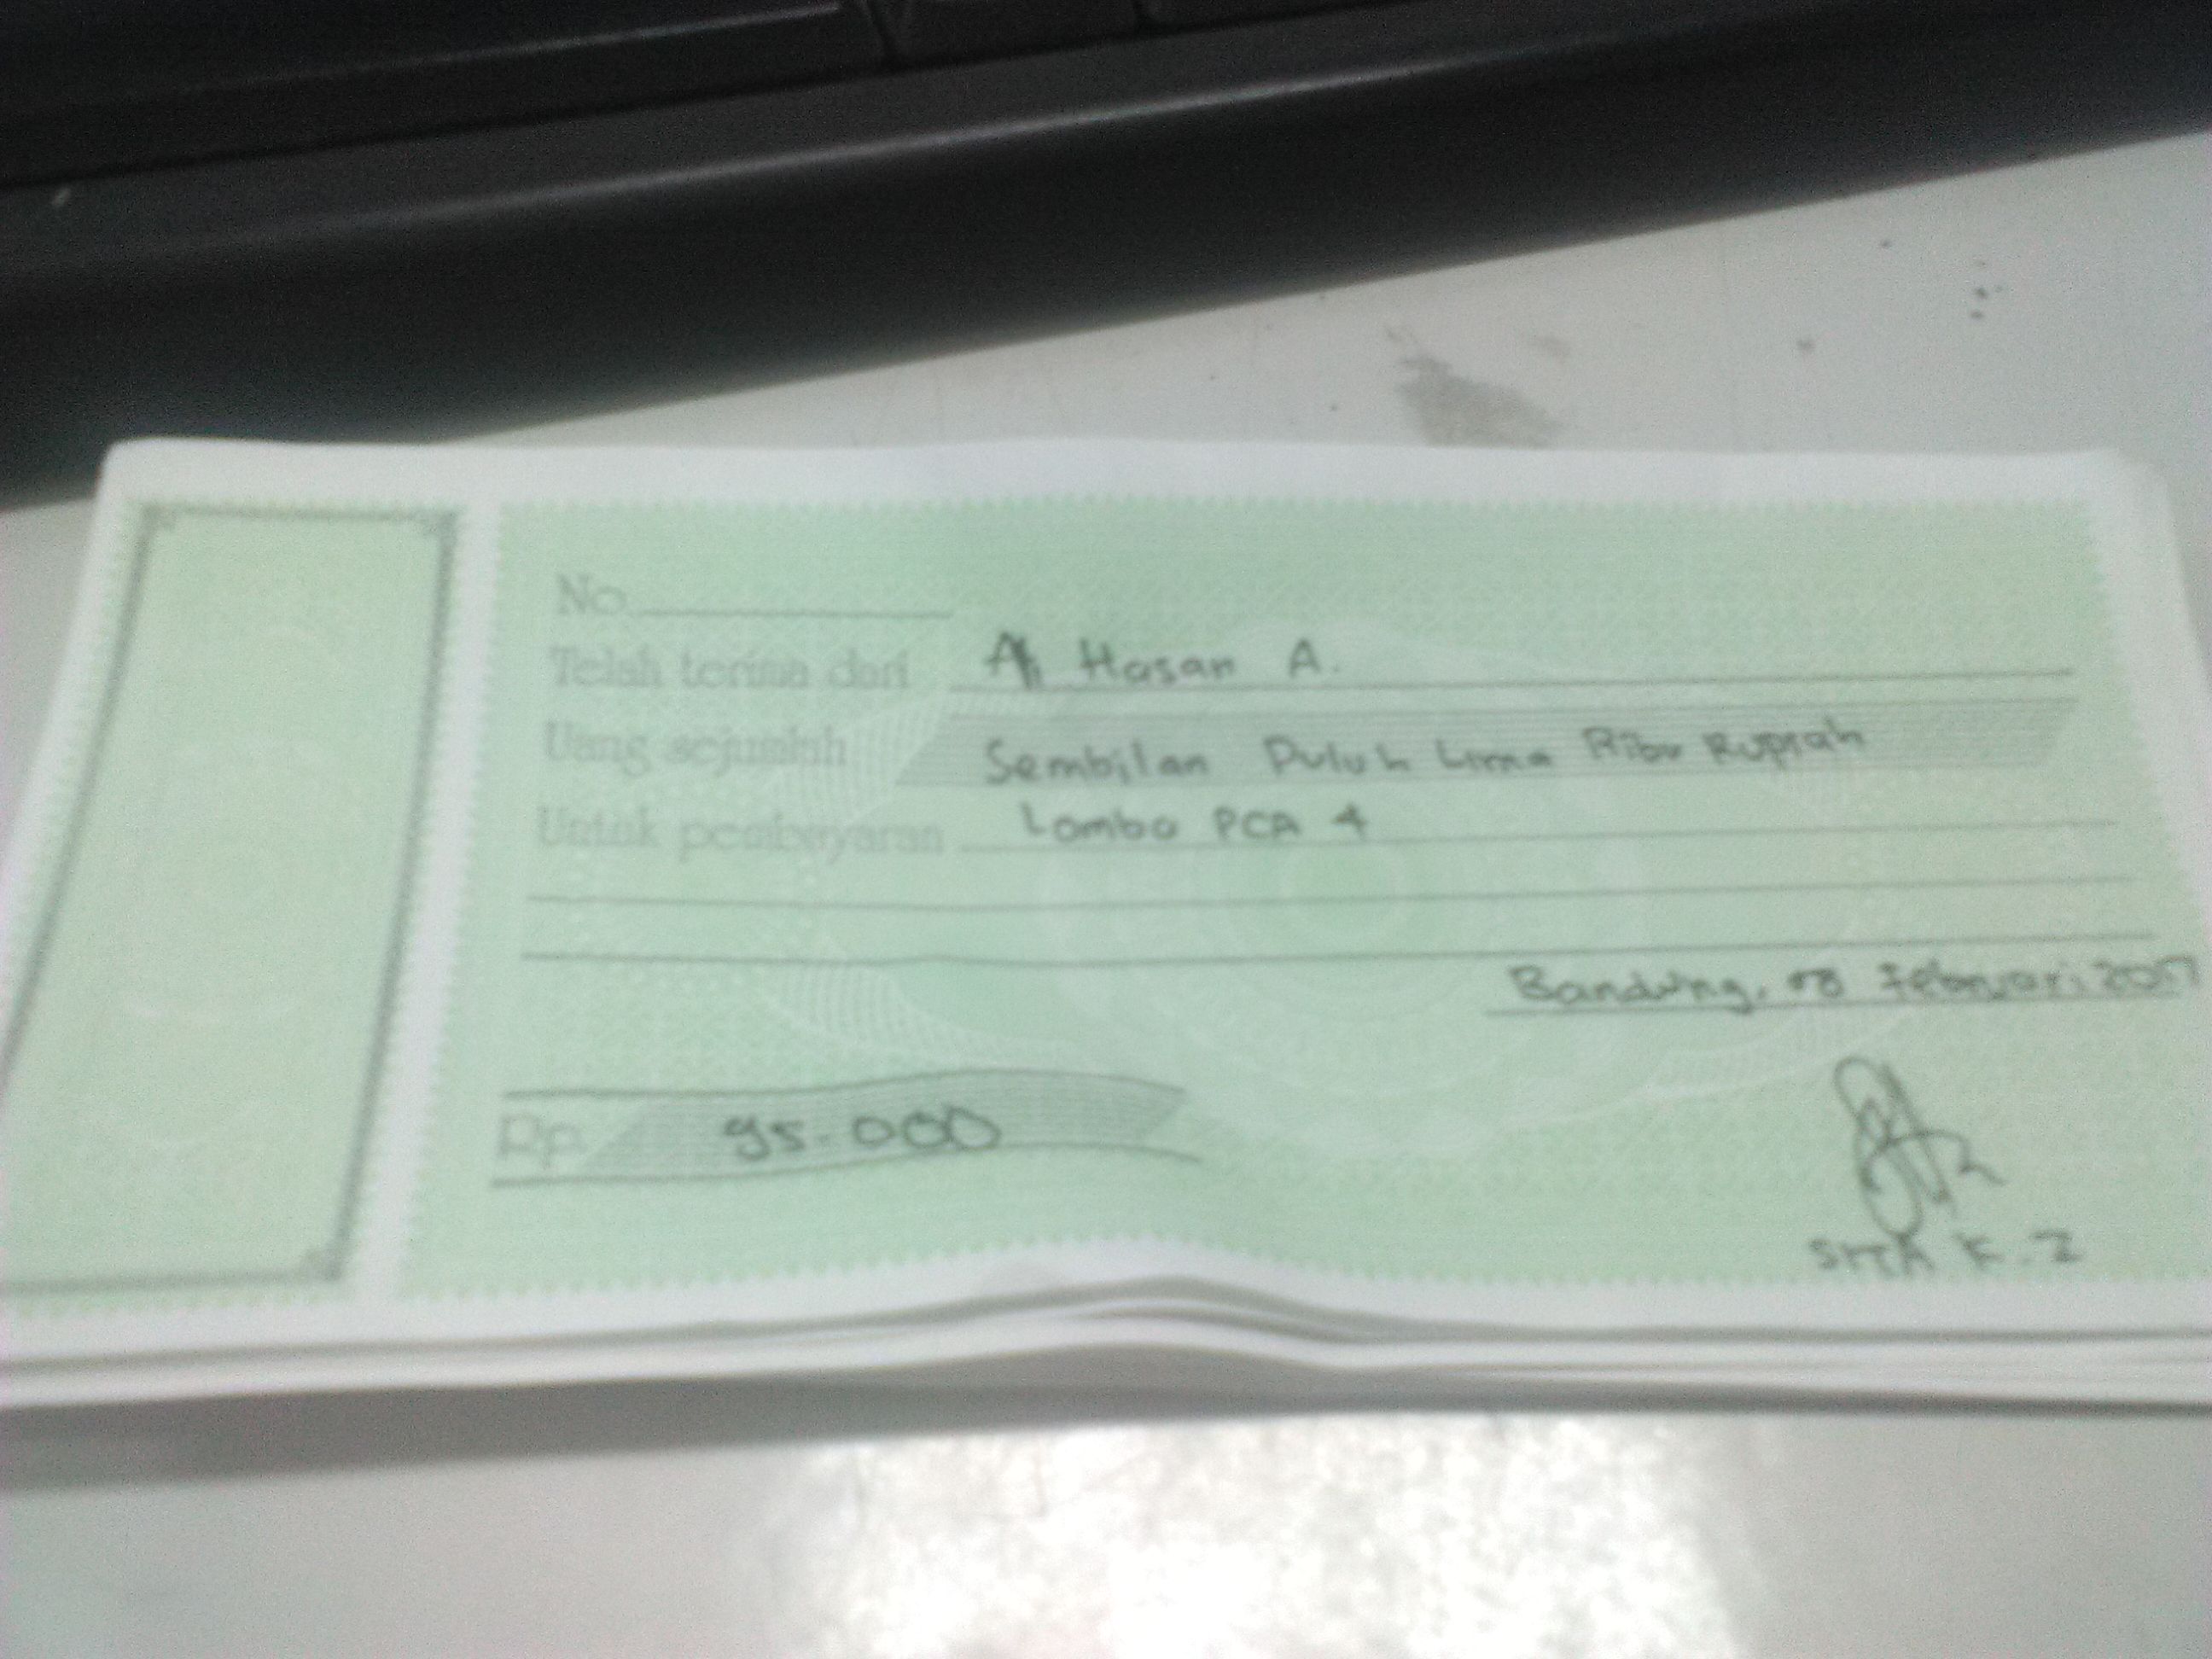 No.
Telah terima dari Ali Hasan A.
Uang sejumlah Sembilan Puluh Lima Ribu Rupiah
Untuk pembayaran Lomba PCA 4
Bandung, 08 Februari 2017
Rp. 95.000
SITA K.Z